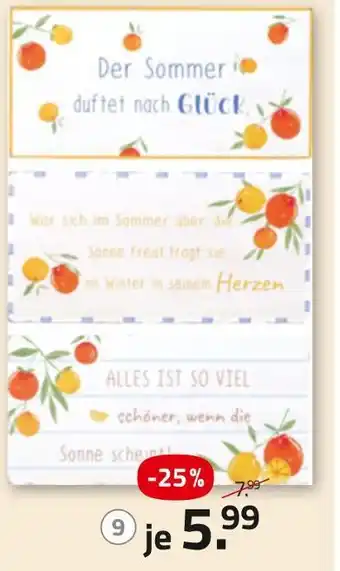 Der Sommer
duftet nach Glück
Wer sich im Sommer über die
Sonne freut trägt sie
im Winter in seinem Herzen
ALLES IST SO VIEL
schöner, wenn die
Sonne scheint!
-25%
7.99
9 je 5.99